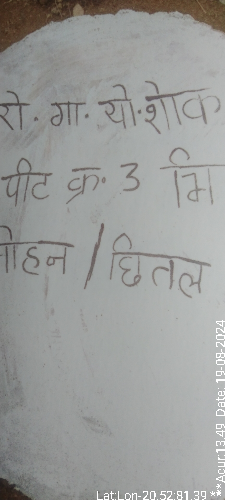 रो. गा. यो. शोक
पीट क्र. 3 मि
मोहन / छितल
Lat:Lon-20.52:81.39
***Acur:13.49 Date:19-08-2024